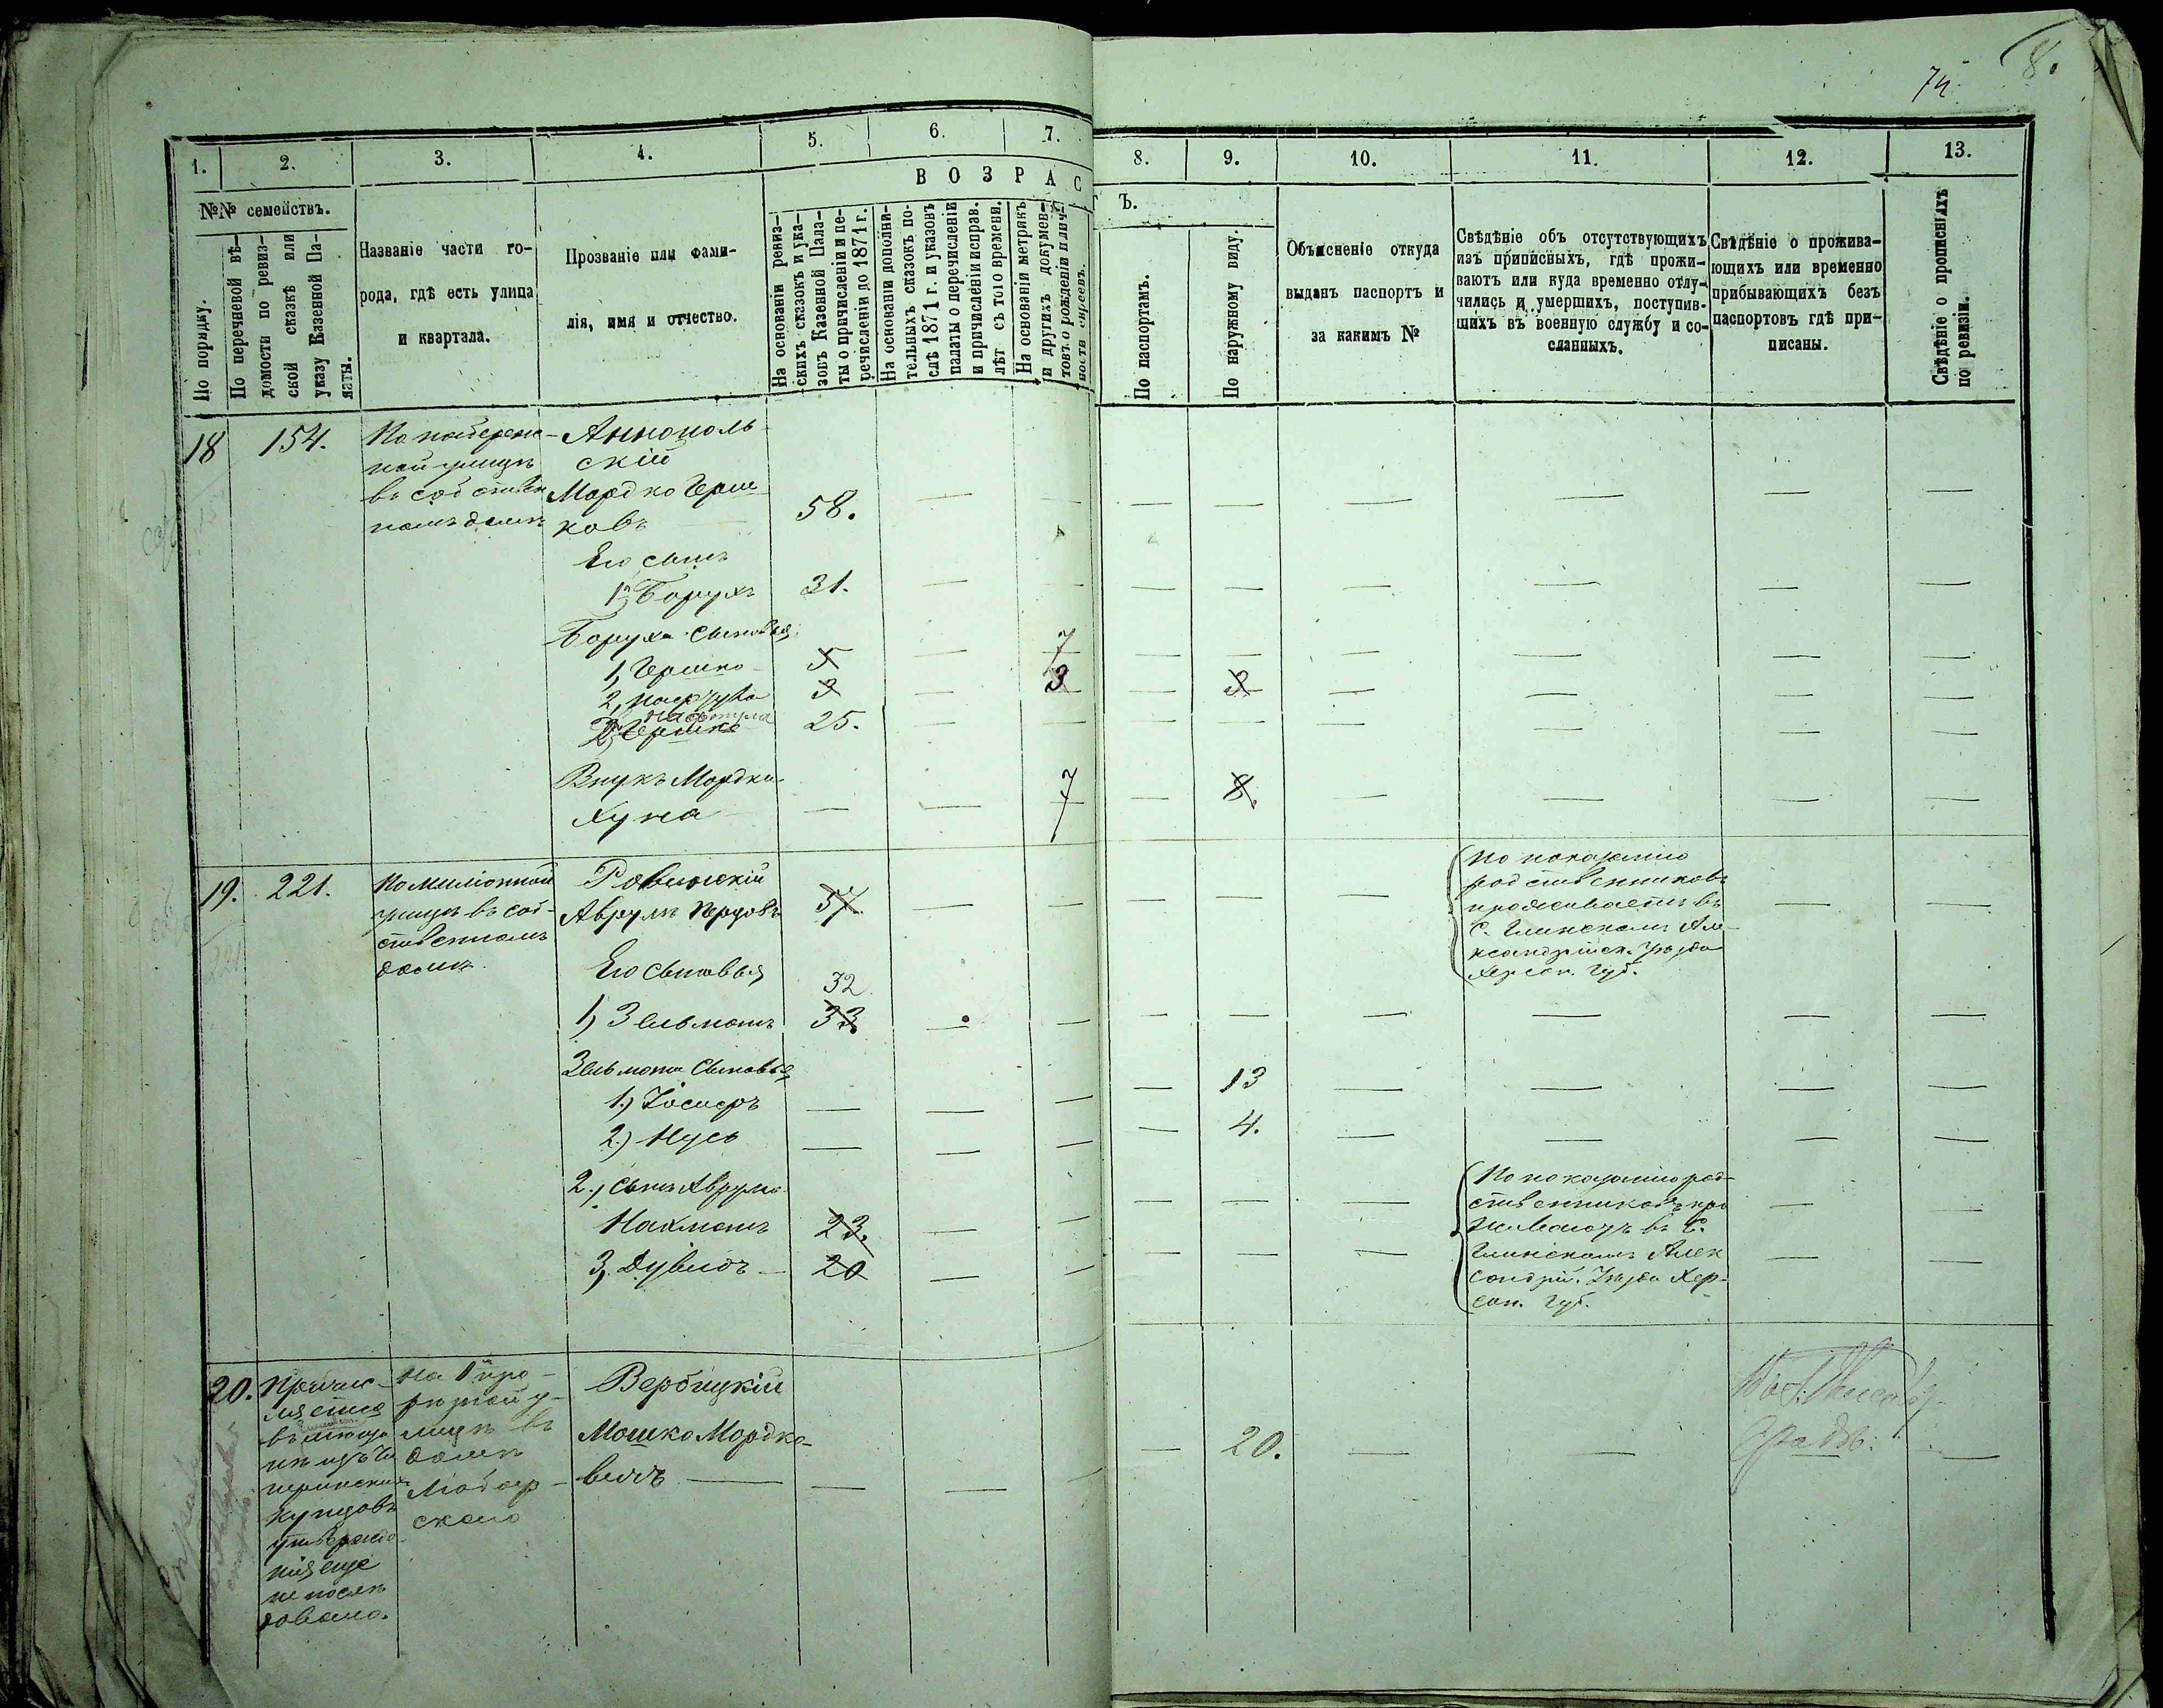 74
8.
1.
2.
3.
4.
5.
6.
7.
8.
9.
10.
11.
12.
13.
№№ семействъ.
По порядку.
По перечневой вѣ-
домости по ревиз-
ской сказкѣ или
указу Казенной Па-
латы.
Названіе части го-
рода, гдѣ есть улица
и квартала.
Прозваніе или фами-
лія, имя и отчество.
ВОЗРАС
ТЪ.
На основаніи ревиз-
скихъ сказокъ и ука-
зовъ Казенной Пала-
ты о причисленіи и пе-
речисленіи до 1871 г.
На основаніи дополни-
тельныхъ сказокъ по-
слѣ 1871 г. и указовъ
палаты о перечисленіи
и причисленіи исправ.
лѣт съ того времени.
На основаніи метрикъ
и другихъ докумен-
товъ о рожденіи и лич-
ности евреевъ.
По паспортамъ.
По наружному виду.
Объясненіе откуда
выданъ паспортъ и
за какимъ №
Свѣдѣніе объ отсутствующихъ
изъ приписныхъ, гдѣ прожи-
ваютъ или куда временно отлу-
чились и умершихъ, поступив-
шихъ въ военную службу и со-
сланныхъ.
Свѣдѣніе о прожива-
ющихъ или временно
прибывающихъ безъ
паспортовъ гдѣ при-
писаны.
Свѣдѣніе о прописныхъ
по ревизіи.
18 154. По набереж- Аннополь
ной улицѣ скій
въ собствен Мордко Герш
номъ домѣ ковъ 58.
Его сынъ
1й Борухъ 31.
Боруха сыновья
1, Гершко 5 7
2, 3 3 3
2, Гершко 25.
Внукъ Мордки
Хуна 7 8.
19. 221. По Миліонной Ровинскій
улицѣ въ соб- Аврумъ 57.
ственномъ
домѣ.
По показанію
родственниковъ
проживаетъ въ
с. Глинскомъ Але-
ксандрійск. Уѣзда
Херсон. Губ.
Его сыновья 32
1, Зельманъ 33
Зельмана сыновья
1.) Іосифъ 13
2.) Нусъ 4.
2., сынъ Аврума
Нахманъ 23.
3, Дувидъ 20
По показанію род-
ственниковъ про
живаютъ въ с.
Глинскомъ Алек
сандрій. Уѣзда Хер-
сон. Губ.
20. Причис- На 1й про-
ляется рѣзной у-
лицѣ въ
домѣ
купцовъ скаго
утвержде
нія еще
не послѣ
довало.
Вербицкій
Мошко Мордко-
вичъ 20.